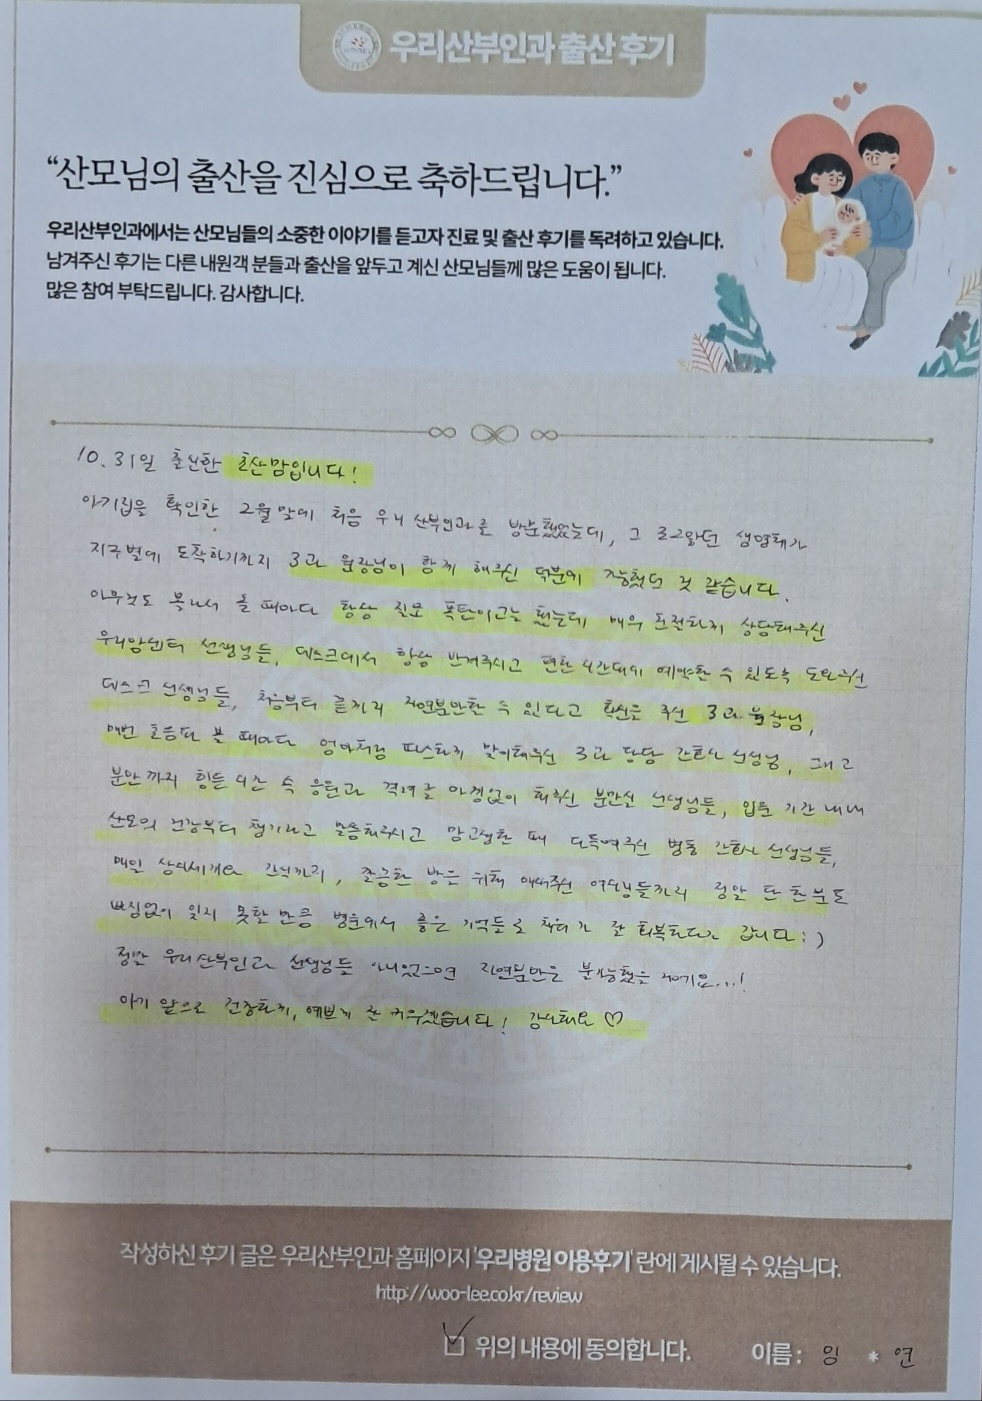 우리산부인과 출산 후기
“산모님의 출산을 진심으로 축하드립니다.”
우리산부인과에서는 산모님들의 소중한 이야기를 듣고자 진료 및 출산 후기를 독려하고 있습니다.
남겨주신 후기는 다른 내원객 분들과 출산을 앞두고 계신 산모님들께 많은 도움이 됩니다.
많은 참여 부탁드립니다. 감사합니다.
10.31일 출산한 초산맘입니다!
아기집을 확인한 2월 말에 처음 우리 산부인과를 방문했었는데, 그 조그맣던 생명체가
지구별에 도착하기까지 3과 원장님이 함께 해주신 덕분에 가능했던 것 같습니다.
아무것도 몰라서 올 때마다 항상 질문 폭탄이고는 했는데 매우 친절하게 상담해주신
우리맘센터 선생님들, 데스크에서 항상 반겨주시고 편한 시간대에 예약할 수 있도록 도와주신
데스크 선생님들, 처음부터 끝까지 자연분만할 수 있다고 확신을 주신 3과 원장님,
매번 초음파 볼 때마다 엄마처럼 따스하게 맞이해주신 3과 담당 간호사 선생님, 그리고
분만까지 힘든 시간 속 응원과 격려를 아낌없이 해주신 분만실 선생님들, 입원 기간 내내
산모의 건강부터 챙기라고 말씀해주시고 맘고생할 때 다독여주신 병동 간호사 선생님들,
매일 삼시세끼와 간식까지, 쾌적한 방을 위해 애써주신 여사님들까지 정말 단 한분도
빠짐없이 잊지 못할 만큼 병원에서 좋은 기억들로 회복하다가 갑니다:)
정말 우리산부인과 선생님들 아니었으면 자연분만은 불가능했을 거예요...!
아기 앞으로 건강하게, 예쁘게 잘 키우겠습니다! 감사해요 ♡
작성하신 후기 글은 우리산부인과 홈페이지 '우리병원 이용후기' 란에 게시될 수 있습니다.
http://woo-lee.co.kr/review
위의 내용에 동의합니다. 이름 : 임 * 연